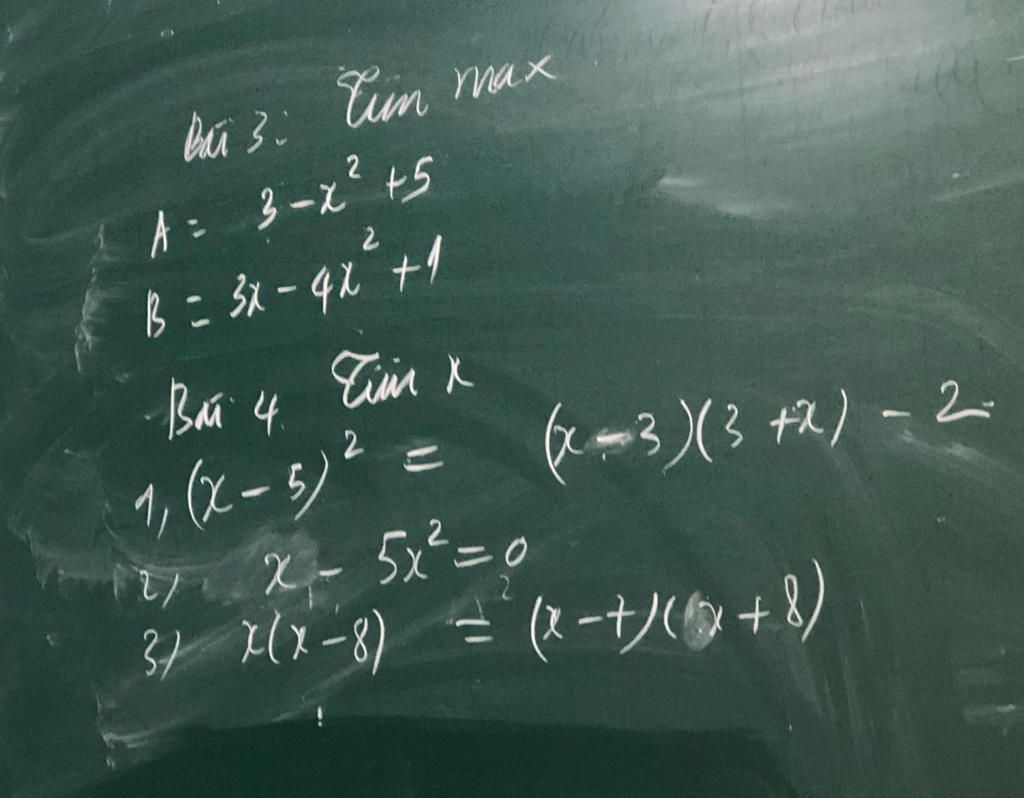 Bài 3: Tìm max
A = 3 - x² + 5
B = 3x - 4x² + 1
Bài 4. Tìm x
1, (x - 5)² = (x - 3)(3 + x) - 2
2) x - 5x² = 0
3) x(x - 8) = (x - 7)(x + 8)